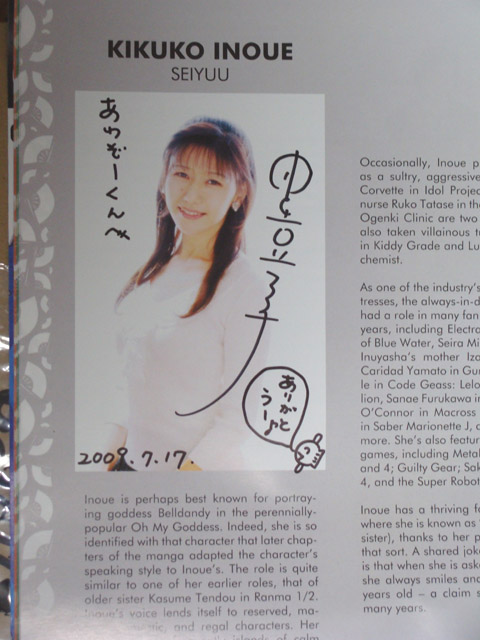 KIKUKO INOUE
SEIYUU
あわぞーくんへ
井上喜久子
ありがと
うー♪
2009.7.17.
Inoue is perhaps best known for portray-
ing goddess Belldandy in the perennially-
popular Oh My Goddess. Indeed, she is so
identified with that character that later chap-
ters of the manga adapted the character's
speaking style to Inoue's. The role is quite
similar to one of her earlier roles, that of
older sister Kasume Tendou in Ranma 1/2.
Inoue's voice lends itself to reserved, ma-
and regal characters. Her
islands of calm
Occasionally, Inoue p
as a sultry, aggressive
Corvette in Idol Projec
nurse Ruko Tatase in the
Ogenki Clinic are two
also taken villainous t
in Kiddy Grade and Lu
chemist.
As one of the industry's
tresses, the always-in-d
had a role in many fan
years, including Electro
of Blue Water, Seira Mi
Inuyasha's mother Iza
Caridad Yamato in Gun
le in Code Geass: Lelo
lion, Sanae Furukawa in
O'Connor in Macross
in Saber Marionette J, a
more. She's also featur
games, including Metal
and 4; Guilty Gear; Sak
4, and the Super Robot
Inoue has a thriving fa
where she is known as
sister), thanks to her p
that sort. A shared joke
is that when she is aske
she always smiles and
years old – a claim s
many years.